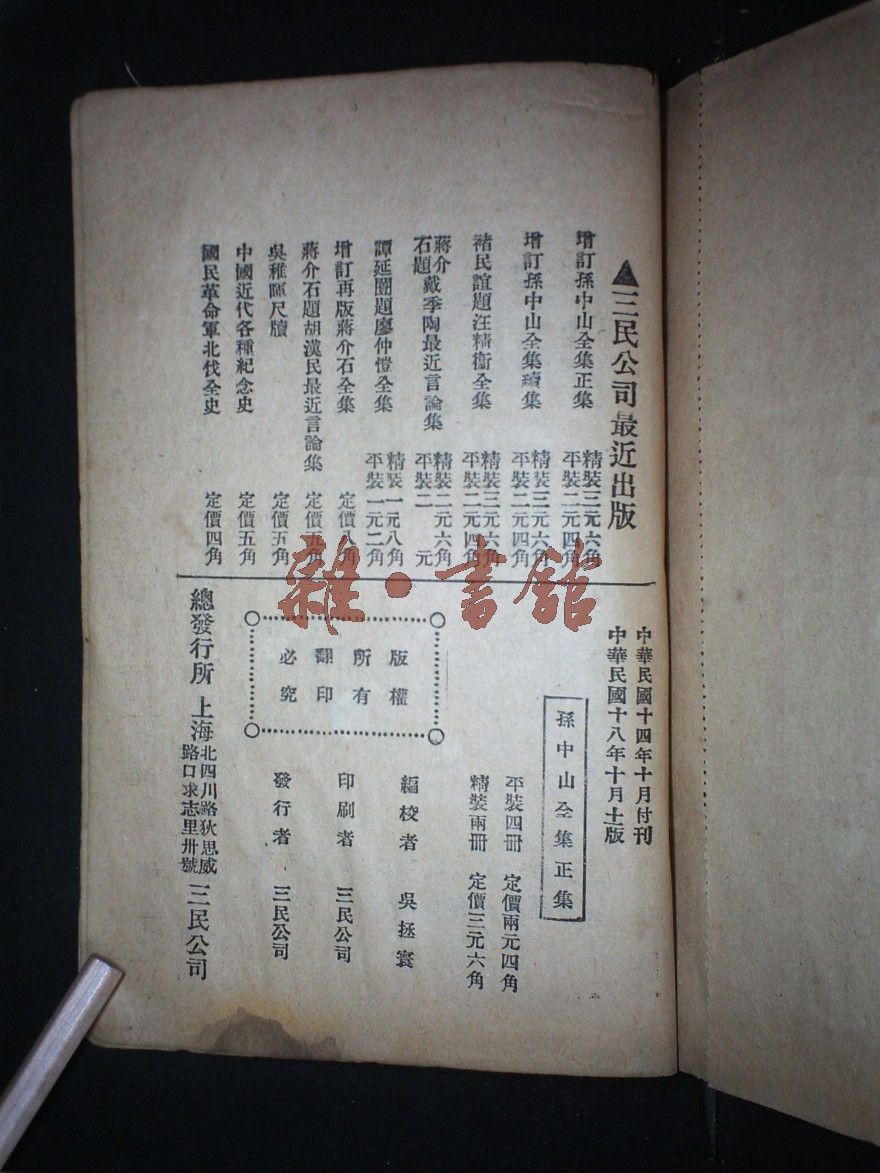 ▲三民公司最近出版
增訂孫中山全集正集 精裝三元六角 平裝二元四角
增訂孫中山全集續集 精裝三元六角 平裝二元四角
褚民誼題汪精衞全集 精裝三元六角 平裝二元四角
蔣介石題戴季陶最近言論集 精裝二元六角 平裝二元
譚延闓題廖仲愷全集 精裝一元八角 平裝一元二角
增訂再版蔣介石全集 定價八角
蔣介石題胡漢民最近言論集 定價五角
吳稚暉尺牘 定價五角
中國近代各種紀念史 定價五角
國民革命軍北伐全史 定價四角
中華民國十四年十月付刊
中華民國十八年十月十版
孫中山全集正集
平裝四册 定價兩元四角
精裝兩册 定價三元六角
編校者 吳拯寰
印刷者 三民公司
發行者 三民公司
版權
所有
翻印
必究
總發行所 上海北四川路狄思威路口求志里卅號 三民公司
雜·書館